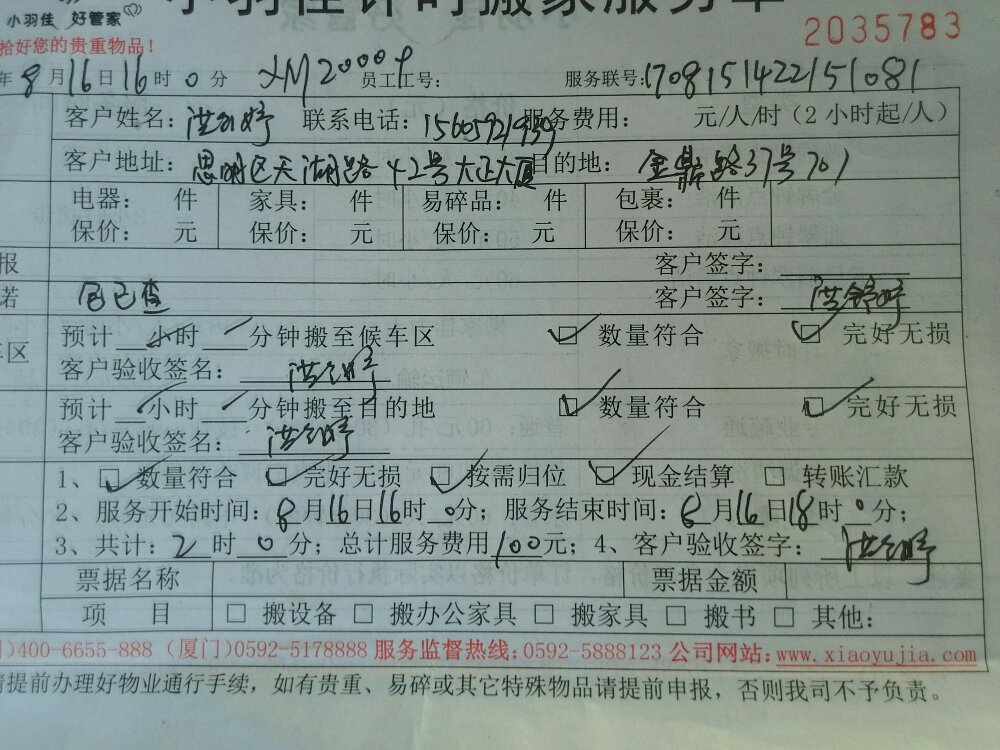 小羽佳计时搬家服务单
小羽佳 好管家
2035783
拾好您的贵重物品！
年8月16日16时0分 XM20009 员工工号： 服务联号：1708151422151081
客户姓名： 联系电话： 服务费用： 元/人/时（2小时起/人）
客户地址：思明区天湖路42号大正大厦 目的地：金鼎路37号701
电器： 件 家具： 件 易碎品： 件 包裹： 件
保价： 元 保价： 元 保价： 元 保价： 元
报 客户签字：
若 包已查 客户签字：
预计 小时 分钟搬至候车区 数量符合 完好无损
车区
客户验收签名：
预计 小时 分钟搬至目的地 数量符合 完好无损
客户验收签名：
1、 数量符合 完好无损 按需归位 现金结算 转账汇款
2、服务开始时间：8月16日16时0分；服务结束时间：8月16日18时0分；
3、共计：2时0分；总计服务费用100元；4、客户验收签字：
票据名称 票据金额
项 目 搬设备 搬办公家具 搬家具 搬书 其他：
)400-6655-888 (厦门)0592-5178888 服务监督热线：0592-5888123 公司网站：www.xiaoyujia.com
请提前办理好物业通行手续，如有贵重、易碎或其它特殊物品请提前申报，否则我司不予负责。